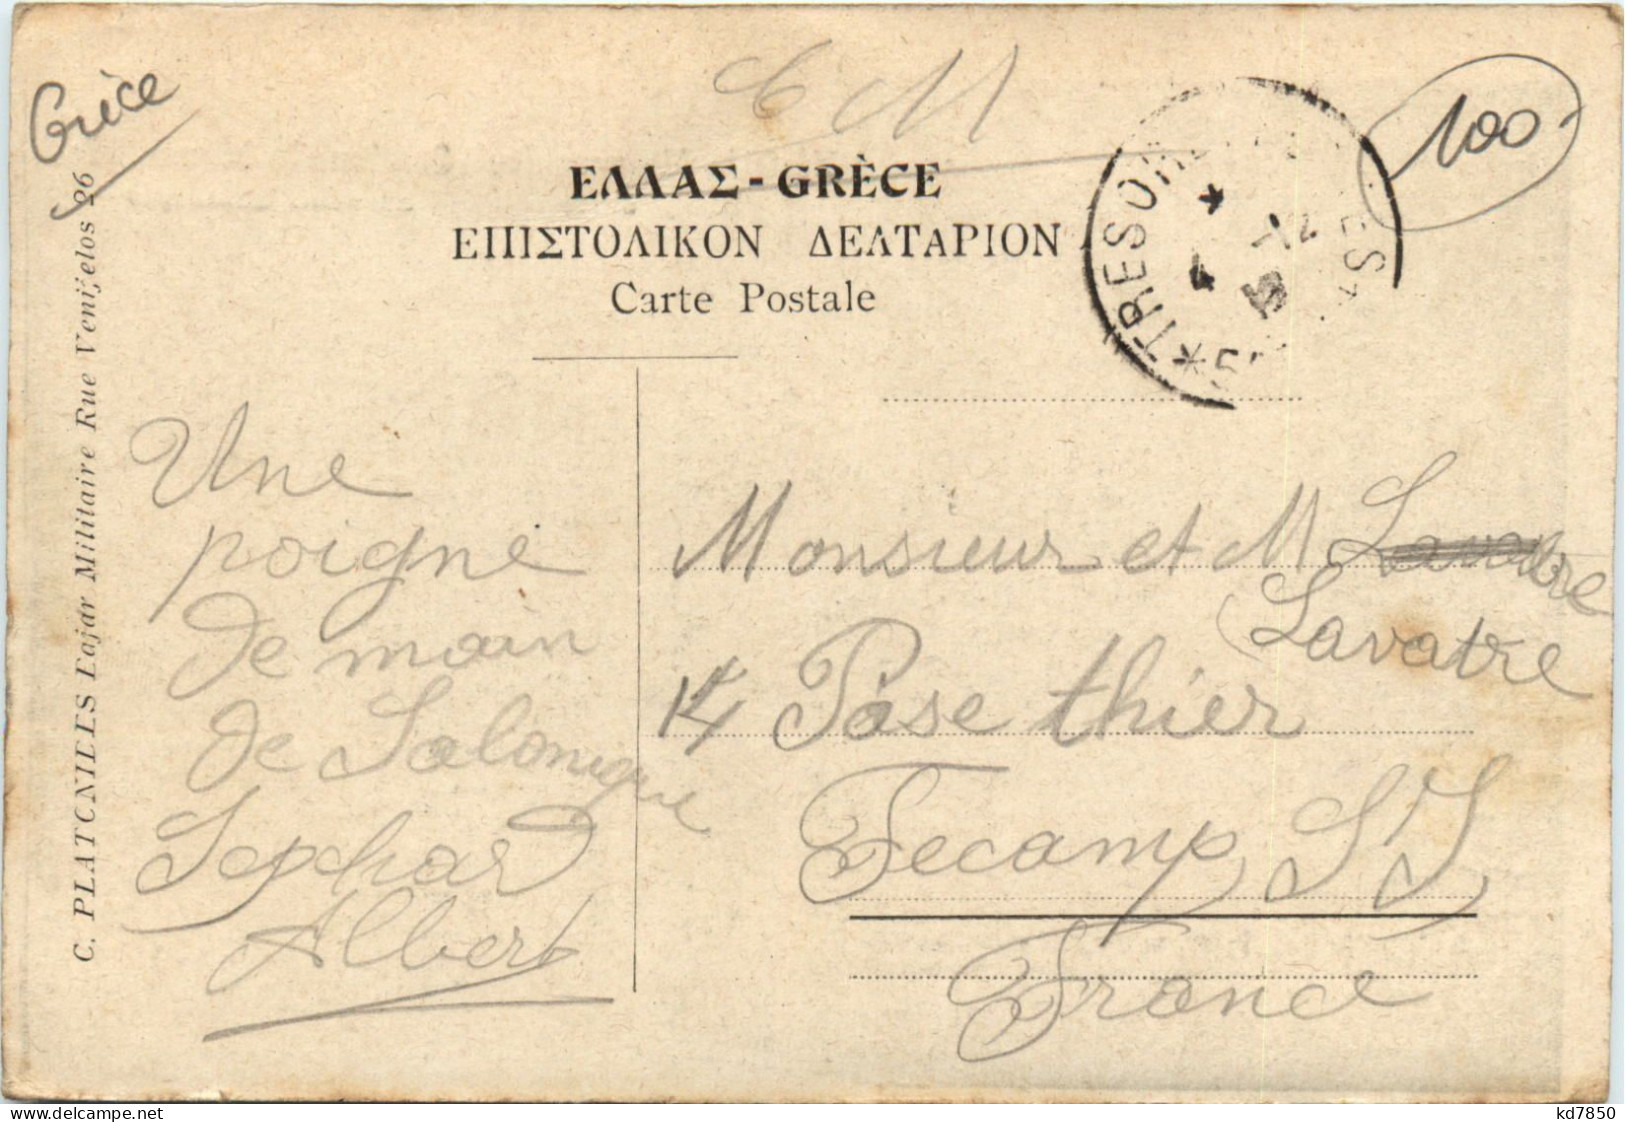 Grèce
C M
100
ΕΛΛΑΣ - GRÈCE
ΕΠΙΣΤΟΛΙΚΟΝ ΔΕΛΤΑΡΙΟΝ
Carte Postale
*TRESOR
C. PLATONIDES Bajar Militaire Rue Venijelos 26
Une
poigné
de main
de Salonique
Sephar
Albert
Monsieur et M Lavatre
Lavatre
14 Pase thier
Fecamp S I
France
delcampe.net
kd7850